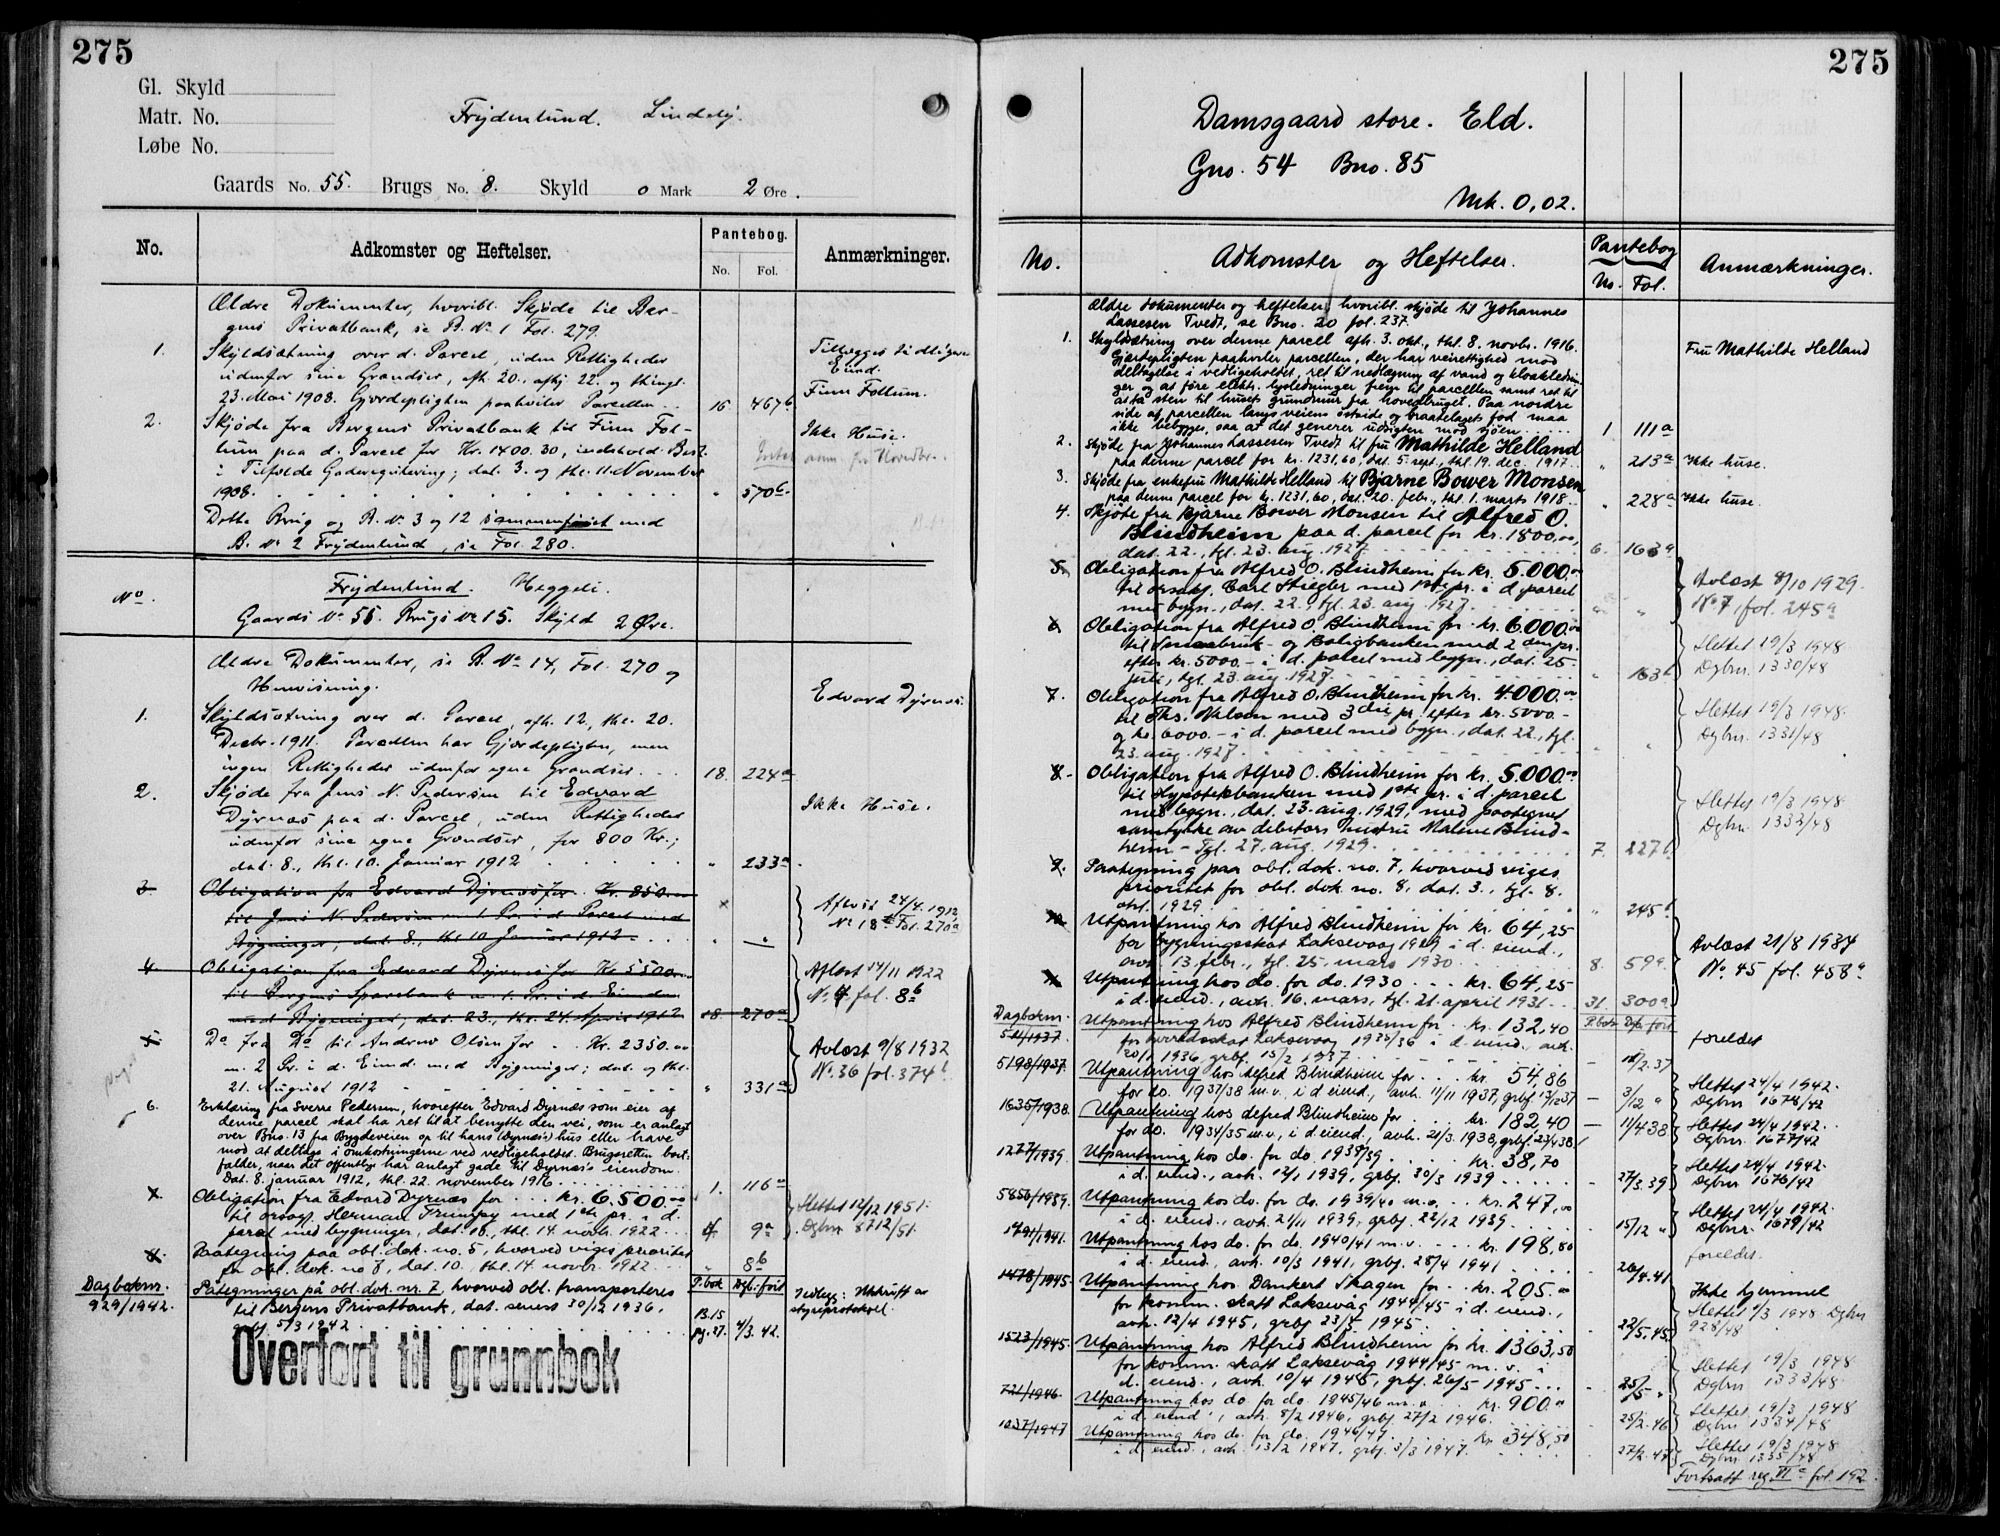 275
Gl. Skyld
Matr. No.
Løbe No.
Frydenlund. Lindely.
Gaards No. 55. Brugs No. 8. Skyld 0 Mark 2 Øre.
No. Adkomster og Heftelser. Pantebog. No. Fol. Anmærkninger.
Ældre Dokumenter, hvoribl. Skjøde til Ber-
gens Privatbank, se B. No. 1 Fol. 279.
1. Skyldsætning over d. Parcel, uden Rettigheder
udenfor sine Grændser, afh. 20., afhj. 22. og thingl.
23. Mai 1908. Gjerdepligten paahviler Parcellen .. 16 467b
Tillægges tidligere
Eiend.
Finn Follum.
2. Skjøde fra Bergens Privatbank til Finn Fol-
lum paa d. Parcel for Kr. 1400.30, indehold. Best.
i Tilfælde Gaderegulering; dat. 3. og thl. 11. November
1908. " 570b
Ikke Huse.
Dette Brug og B. No. 3 og 12 sammenføiet med
B. No 2 Frydenlund, se Fol. 280.
No. Frydenlund. Heggeli.
Gaards No 55. Brugs No 15. Skyld 2 Øre.
Ældre Dokumenter, se B. No 14, Fol. 270 og
Henvisning.
1. Skyldsætning over d. Parcel, afh. 12., thl. 20.
Decbr. 1911. Parcellen har Gjerdepligten, men
ingen Rettigheder udenfor egne Grændser. 18. 224a
Edvard Dyrnæs.
2. Skjøde fra Jens N. Pedersen til Edvard
Dyrnæs paa d. Parcel, uden Rettigheder
udenfor sine egne Grændser, for 800 Kr.;
dat. 8., thl. 10. Januar 1912 " 233a
Ikke Huse.
3. Obligation fra Edvard Dyrnæs for Kr. 850.00
til Jens N. Pedersen m. 1 Pr. i d. Parcel med
Bygninger, dat. 8., thl. 10 Januar 1912. " "
Afløst 24/4. 1912
No 18 Fol. 270a
4. Obligation fra Edvard Dyrnæs for Kr. 5500.00
til Bergens Sparebank m. 1. Pr. i d. Eiendom
med Bygninger, dat. 23., thl. 24. April 1912 18. 270a
Aflöst 14/11 1922
No. 4 fol. 8b
5. Do fra Do til Andreas Olsen for .. Kr. 2350.00
m. 2 Pr. i d. Eiend. med Bygninger; dat. og thl.
21. August 1912 " 331a
Avløst 9/8 1932
No. 36 fol. 374b
6. Erklæring fra Sverre Pedersen, hvorefter Edvard Dyrnæs som eier af
denne parcel skal ha ret til at benytte den vei, som er anlagt
over Bno. 13 fra Bygdeveien op til hans (Dyrnæs's) hus eller have
mod at deltage i omkostningerne ved vedligeholdet. Brugsretten bort-
falder, naar det offentlige har anlagt gade til Dyrnæs's eiendom.
Dat. 8. januar 1912, thl. 22. november 1916 1. 116a
7. Obligation fra Edvard Dyrnæs for ... kr. 6.500.00
til orsagf. Herman Trumpy med 1ste pr. i d.
parcel med bygninger, dat. 10., thl. 14. novbr. 1922 ... 4 9a
Slettet 12/12 1951.
Dgbnr 8712/51.
8. Paategning paa obl. dok. no. 5, hvorved viges prioritet
for obl. dok. no 7, dat. 10., thl. 14. novbr. 1922 " 8b
Dagboknr.
929/1942. Påtegninger på obl. dok. nr. 7 hvorved obl. transporteres
til Bergens Privatbank, dat. senest 30/12 1936.
grbf. 5/3 1942
P.bok Dgb. ført
B.15
pg. 27. 4/3. 42.
Vedlegg: Utskrift av
styreprotokoll.
Overført til grunnbok
275
Damsgaard store. Eld.
Gno. 54 Bno. 85
Mrk. 0,02.
No. Adkomster og Heftelser. Pantebog No. Fol. Anmærkninger.
Ældre dokumenter og heftelser, hvoribl. skjøde til Johannes
Lassesen Tvedt, se Bno. 20 fol. 237.
1. Skyldsætning over denne parcel afh. 3. okt., thl. 8. novbr. 1916.
Gjærdepligten paahviler parcellen, der har veirettighed mod
deltagelse i vedligeholdet, ret til nedlægning af vand og kloakledin-
ger og at føre elektr. lysledninger frem til parcellen samt ret til
at ta sten til husets grundmur fra hovedbruget. Paa nordre
side af parcellen langs veiens østside og braatelagets fod maa
ikke bebygges, saa at det generer udsigten mod sjøen 1. 111a
Fru Mathilde Helland
2. Skjøde fra Johannes Lassesen Tvedt til fru Mathilde Helland
paa denne parcel for kr. 1231,60, dat. 5. sept., thl. 19. dec. 1917. " 213a Ikke huse.
3. Skjøde fra enkefru Mathilde Helland til Bjarne Bower Monsen
paa denne parcel for kr. 1231,60, dat. 20. febr., thl. 1. marts 1918 " 228a Ikke huse.
4. Skjøte fra Bjarne Bower Monsen til Alfred O.
Blindheim paa d. parcel for kr. 1800,00,
dat. 22., tgl. 23. aug. 1927. 6. 163a
5. Obligation fra Alfred O. Blindheim for kr. 5.000.00
til orsakf. Carl Stiegler med 1ste pr. i d. parcel
med bygn., dat. 22., tgl. 23. aug. 1927 " "
Avløst 8/10 1929.
No 7, fol. 245a
6. Obligation fra Alfred O. Blindheim for kr. 6.000.00
til Smaabruk- og Boligbanken med 2den pr.
efter kr. 5000.- i d. parcel med bygn., dat. 25.
juli, tgl. 23. aug. 1927 " 163b
Slettet 19/3 1948
Dgbnr. 1330/48
7. Obligation fra Alfred O. Blindheim for kr. 4.000.00
til Ths. Nilsen med 3die pr. efter kr. 5000.-
og kr. 6000.- i d. parcel med bygn., dat. 22., tgl.
23. aug. 1927. " "
Slettet 19/3 1948.
Dgbnr. 1331/48
8. Obligation fra Alfred O. Blindheim for kr. 5.000.00
til Hypotekbanken med 1ste pr. i d. parcel
med bygn., dat. 23. aug. 1929, med paategnet
samtykke av debitors hustru Maline Blind-
heim - Tgl. 27. aug. 1929. 7. 227b
Slettet 19/3 1948
Dgbnr. 1332/48
9. Paategning paa obl. dok. no. 7, hvorved viges
prioritet for obl. dok. no. 8, dat. 3., tgl. 8.
okt. 1929 " 245b
10. Utpantning hos Alfred Blindheim for kr. 64,25
for bygningsskat Laksevaag 1929 i d. eiend.,
avh. 13. febr., tgl. 25. mars 1930 8. 59a
Avløst 21/8 1934
No. 45 fol. 458a
11. Utpantning hos do. for do. 1930 ... kr. 64,25
i d. eiend., avh. 16. mars, tgl. 21. april 1931 .. 31. 300a
Dagboknr. P.bok Dgb. ført
541/1937. Utpantning hos Alfred Blindheim for . kr. 132,40
for herredsskat Laksevaag 1935/36 i d. eiend., avh.
20/1 1936, grbf. 15/2 1937 - 15/2.37 foreldet
5198/1937. Utpantning hos Alfred Blindheim for ... kr. 54,86
for do. 1937/38 m.v. i d. eiend., avh. 11/11 1937, grbf 13/12 37 - 3/12 "
Slettet 24/4 1942.
Dgbnr. 1678/42
1635/1938. Utpantning hos Alfred Blindheim for ... kr. 182,40
for do. 1934/35 m.v., i d. eiend., avh. 21/3. 1938, grbf. 27/4 38 - 11/4 38
Slettet 24/4 1942.
Dgbnr. 1677/42
1277/1939. Utpantning hos do. for do. 1938/39 kr. 38,70
i d. eiend., avh. 12/1 1939, grbf. 30/3 1939 27/3.39
Slettet 24/4 1942.
Dgbnr. 1676/42
5856/1939. Utpantning hos do. for do. 1939/40 m.v. .. kr. 247,00
i d. eiend., avh. 21/11 1939, grbf. 22/12 1939 15/12 "
Slettet 24/4 1942.
Dgbnr. 1679/42
1491/1941. Utpantning hos do. for do. 1940/41 m.v. ... kr. 198,80
i d. eiend., avh. 10/3 1941, grbf. 28/4 1941 26/4.41
foreldet.
1478/1945. Utpantning hos Dankert Skagen for .. kr. 205.00
for komm. skatt Laksevåg 1944/45 i d. eiend.,
avh. 12/4 1945, grbf. 23/5 1945 22/5.45.
Ikke hjemmel
Slettet 1/3 1948. Dgbnr
928/48
1523/1945. Utpantning hos Alfred Blindheim for kr. 1363,50
for komm. skatt Laksevåg 1944/45 m.v. i
d. eiend., avh. 10/4 1945, grbf. 26/5 1945 ... 25/5 "
Slettet 19/3 1948
Dgbnr. 1333/48.
721/1946. Utpantning hos do. for do. 1945/46 m.v. kr. 900.00
i d. eiend., avh. 8/2 1946, grbf. 27/2 1946. 25/2.46
Slettet 19/3 1948
Dgbnr. 1334/48
1037/1947 Utpantning hos do. for do. 1946/47 kr. 348,50
i d. eiend., avh. 13/2 1947, grbf. 3/3 1947. 27/2.47
Slettet 19/3 1948
Dgbnr. 1335/48
Fortsatt reg. VI a fol. 192.